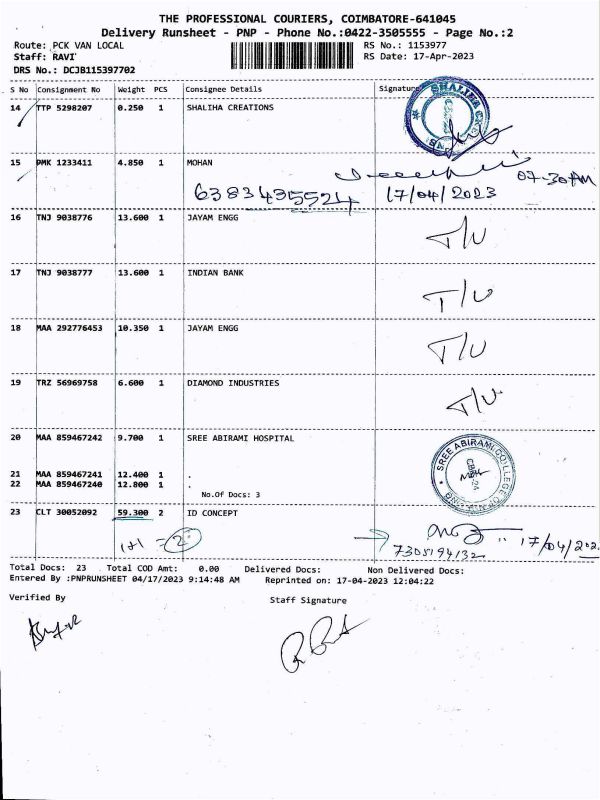 THE PROFESSIONAL COURIERS, COIMBATORE-641045
Delivery Runsheet - PNP - Phone No.:0422-3505555 - Page No.:2
Route: PCK VAN LOCAL RS No.: 1153977
Staff: RAVI RS Date: 17-Apr-2023
DRS No.: DCJB115397702
S No Consignment No Weight PCS Consignee Details Signature
14 TTP 5298207 0.250 1 SHALIHA CREATIONS
15 PMK 1233411 4.850 1 MOHAN 07-30AM
6383435524 17/04/2023
16 TNJ 9038776 13.600 1 JAYAM ENGG T/U
17 TNJ 9038777 13.600 1 INDIAN BANK T/U
18 MAA 292776453 10.350 1 JAYAM ENGG T/U
19 TRZ 56969758 6.600 1 DIAMOND INDUSTRIES T/U
20 MAA 859467242 9.700 1 SREE ABIRAMI HOSPITAL
SREE ABIRAMI COLLEGE OF NURSING
21 MAA 859467241 12.400 1 .
22 MAA 859467240 12.800 1 .
No.Of Docs: 3
23 CLT 30052092 59.300 2 ID CONCEPT
1+1 = 2 7305194132 17/04/202
Total Docs: 23 Total COD Amt: 0.00 Delivered Docs: Non Delivered Docs:
Entered By :PNPRUNSHEET 04/17/2023 9:14:48 AM Reprinted on: 17-04-2023 12:04:22
Verified By Staff Signature